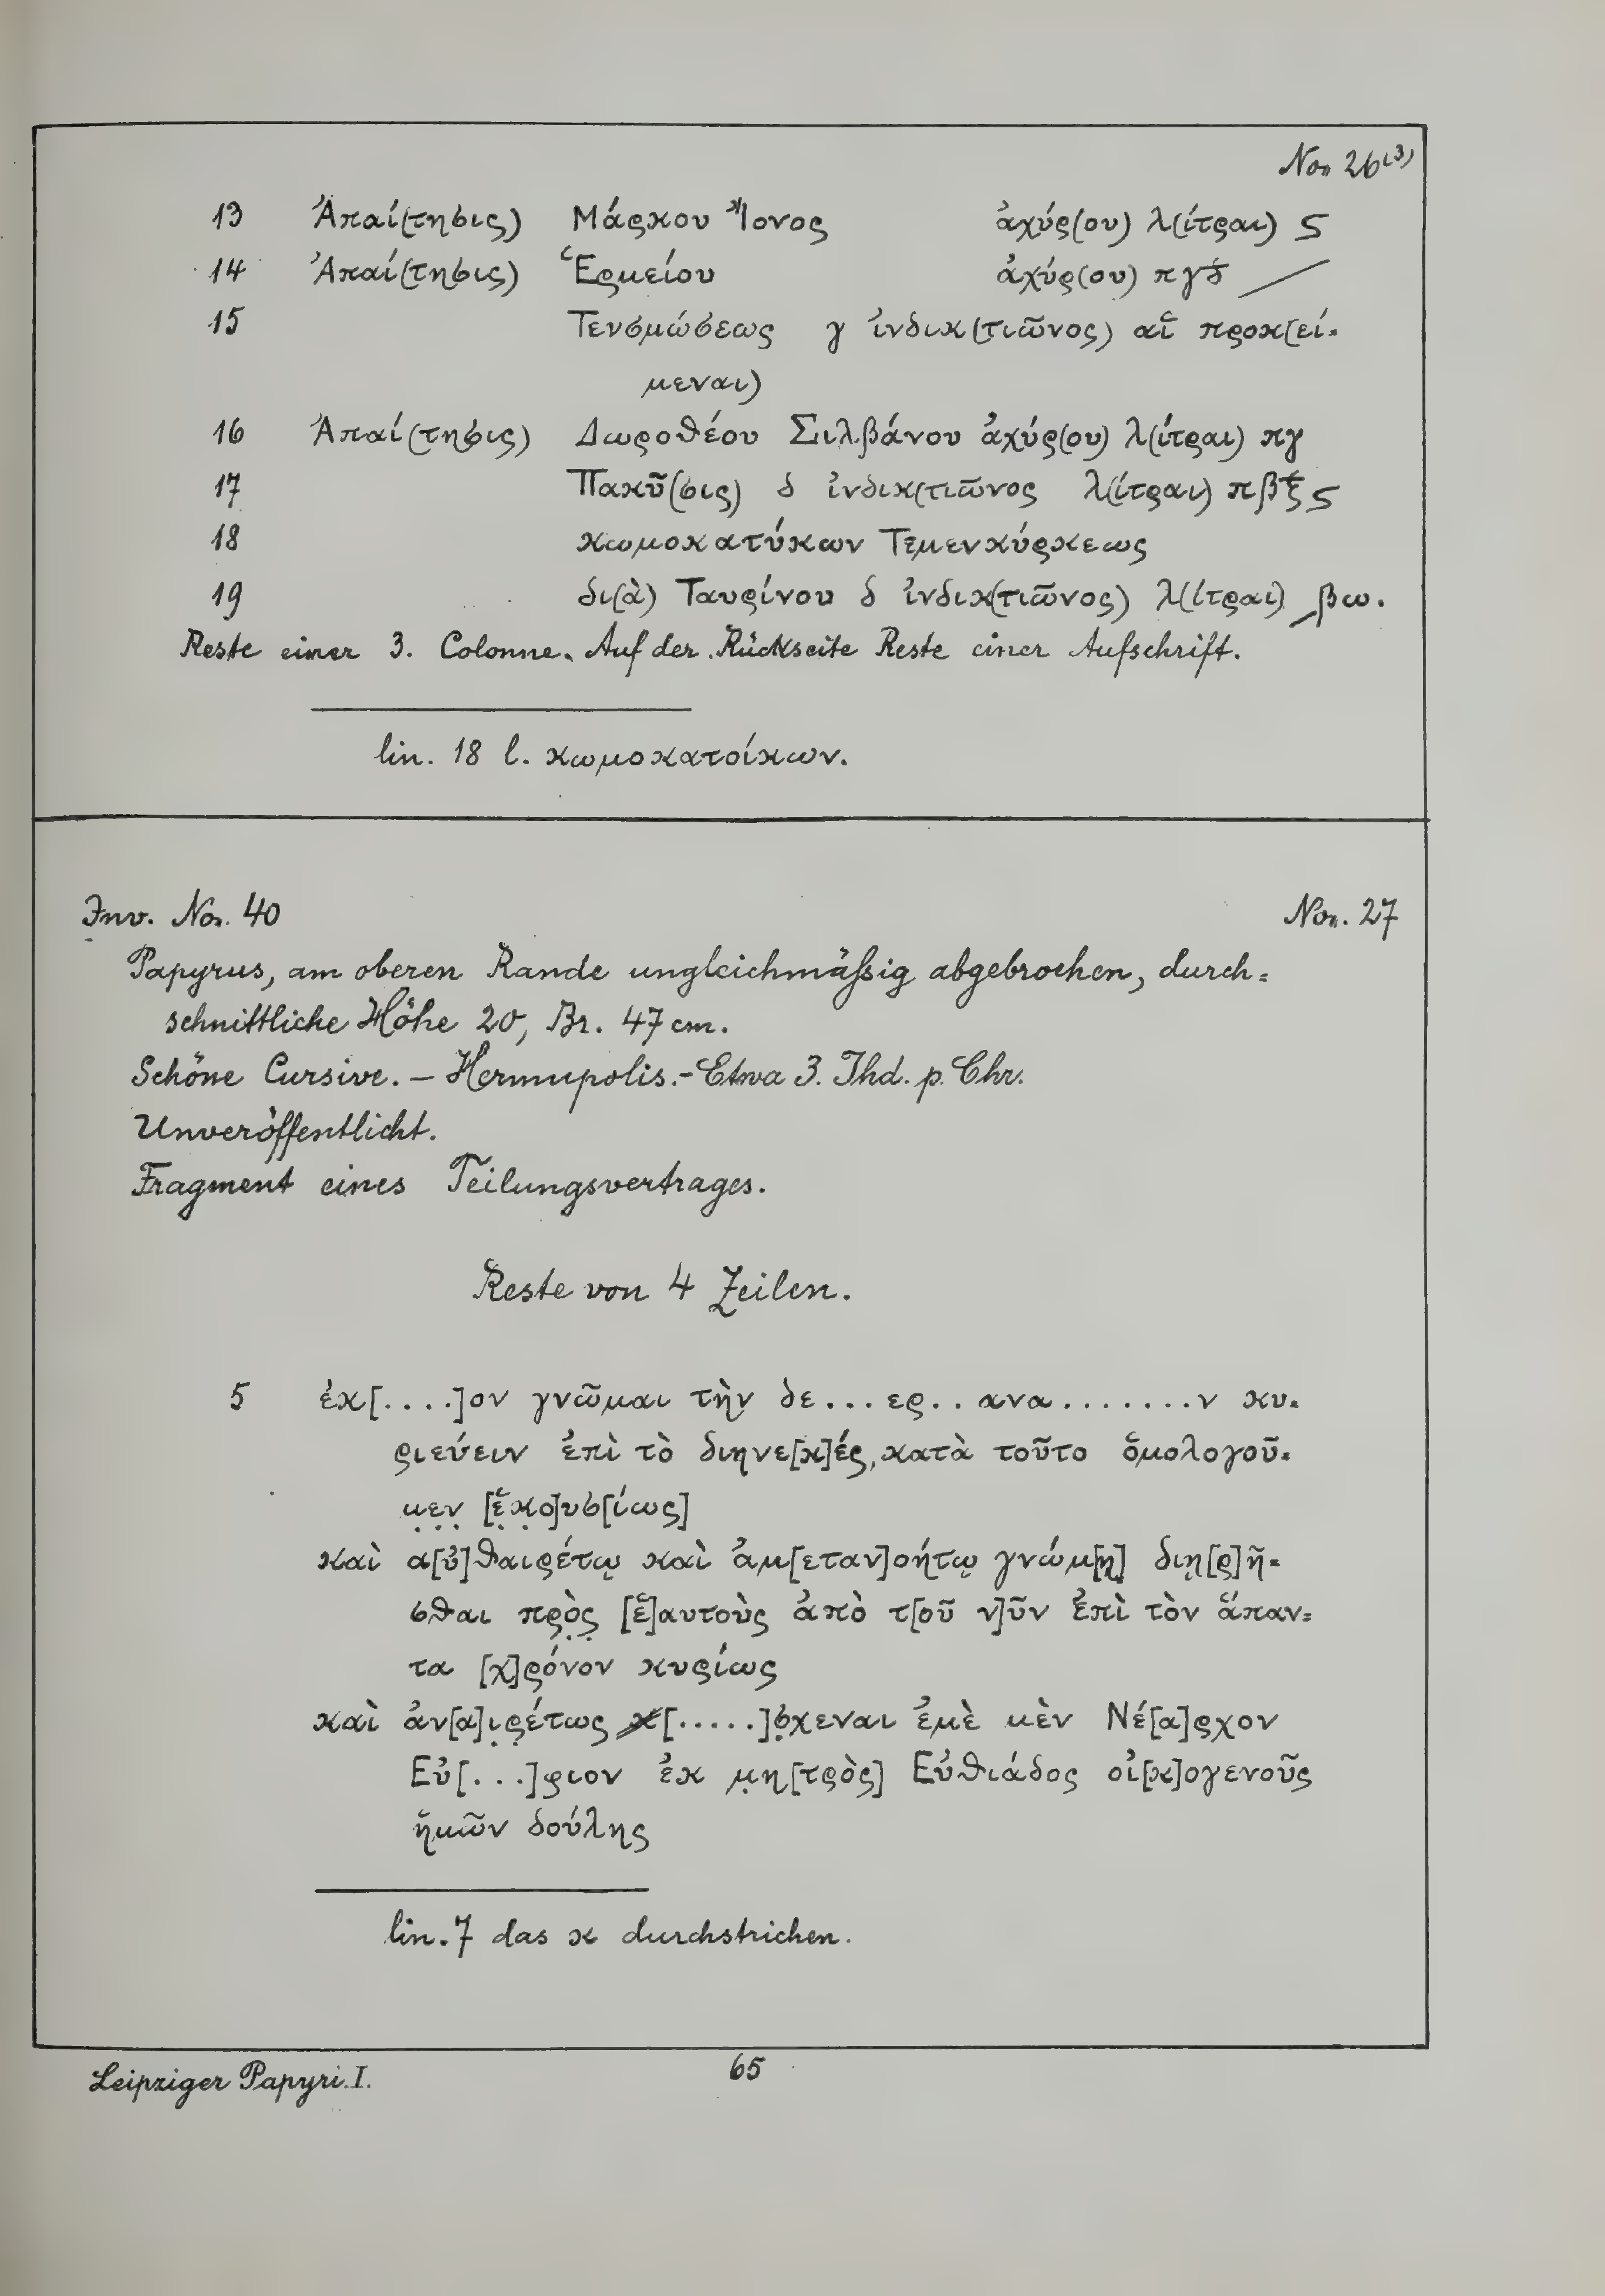 No. 26(3)
13 Ἀπαί(τησις) Μάρκου Ἴονος ἀχύρ(ου) λ(ίτραι) ϛ
14 Ἀπαί(τησις) Ἑρμείου ἀχύρ(ου) πγδ
15 Τενσμώσεως γ ἰνδικ(τιῶνος) αἵ προκ(εί=
μεναι)
16 Ἀπαί(τησις) Δωροθέου Σιλβάνου ἀχύρ(ου) λ(ίτραι) πγ
17 Πακῦ(σις) δ ἰνδικ(τιῶνος λ(ίτραι) πβξϛ
18 κωμοκατύκων Τεμενκύρκεως
19 δι(ὰ) Ταυρίνου δ ἰνδικ(τιῶνος) λ(ίτραι) ͵βω.
Reste einer 3. Colonne. Auf der Rückseite Reste einer Aufschrift.
lin. 18 l. κωμοκατοίκων.
Inv. No. 40 No. 27
Papyrus, am oberen Rande ungleichmäßig abgebrochen, durch=
schnittliche Höhe 20, Br. 47 cm.
Schöne Cursive. – Hermupolis. – Etwa 3. Jhd. p. Chr.
Unveröffentlicht.
Fragment eines Teilungsvertrages.
Reste von 4 Zeilen.
5 ἐκ[....]ον γνῶμαι τὴν δε...ερ..ανα........ν κυ=
ριεύειν ἐπὶ τὸ διηνε[κ]ές, κατὰ τοῦτο ὁμολογοῦ=
μ̣ε̣ν̣ [ἑ̣κ̣ο̣]υσ[ίως]
καὶ α[ὐ]θαιρέτῳ καὶ ἀμ[εταν]οήτῳ γνώμ[ῃ] διῃ[ρ]ῆ=
σθαι πρ̣ὸ̣ς̣ [ἑ]αυτοὺς ἀπὸ τ[οῦ ν]ῦν ἐπὶ τὸν ἅπαν=
τα [χ]ρόνον κυρίως
καὶ ἀν[α]ι̣ρ̣έτως κ[.....]σ̣χεναι ἐμὲ μὲν Νέ[α]ρχον
Εὐ[...]φιον ἐκ μ̣η[τρὸς] Εὐθιάδος οἰ[κ]ογενοῦς
ἡμῶν δούλης
lin. 7 das κ durchstrichen.
Leipziger Papyri. I. 65